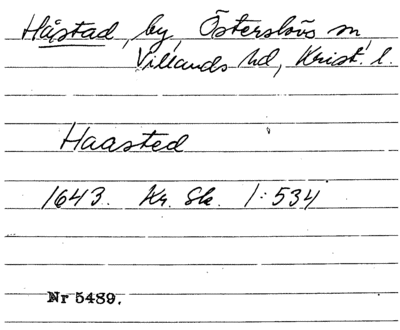 Håstad, by, Österslövs sn,
Villands hd, Krist. l.
Haasted
1643. Kr. Sk. 1:534
Nr 5489.